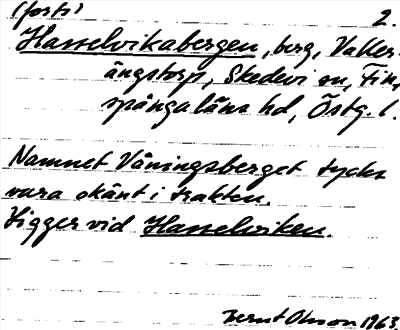 (forts) 2.
Hasselvikabergen, berg, Valler-
ängstorp, Skedevi sn, Fin,
spånga läns hd, Östg. l.
Namnet Våningsberget tycks
vara okänt i trakten.
Ligger vid Hasselviken.
Bernt Olsson 1963.